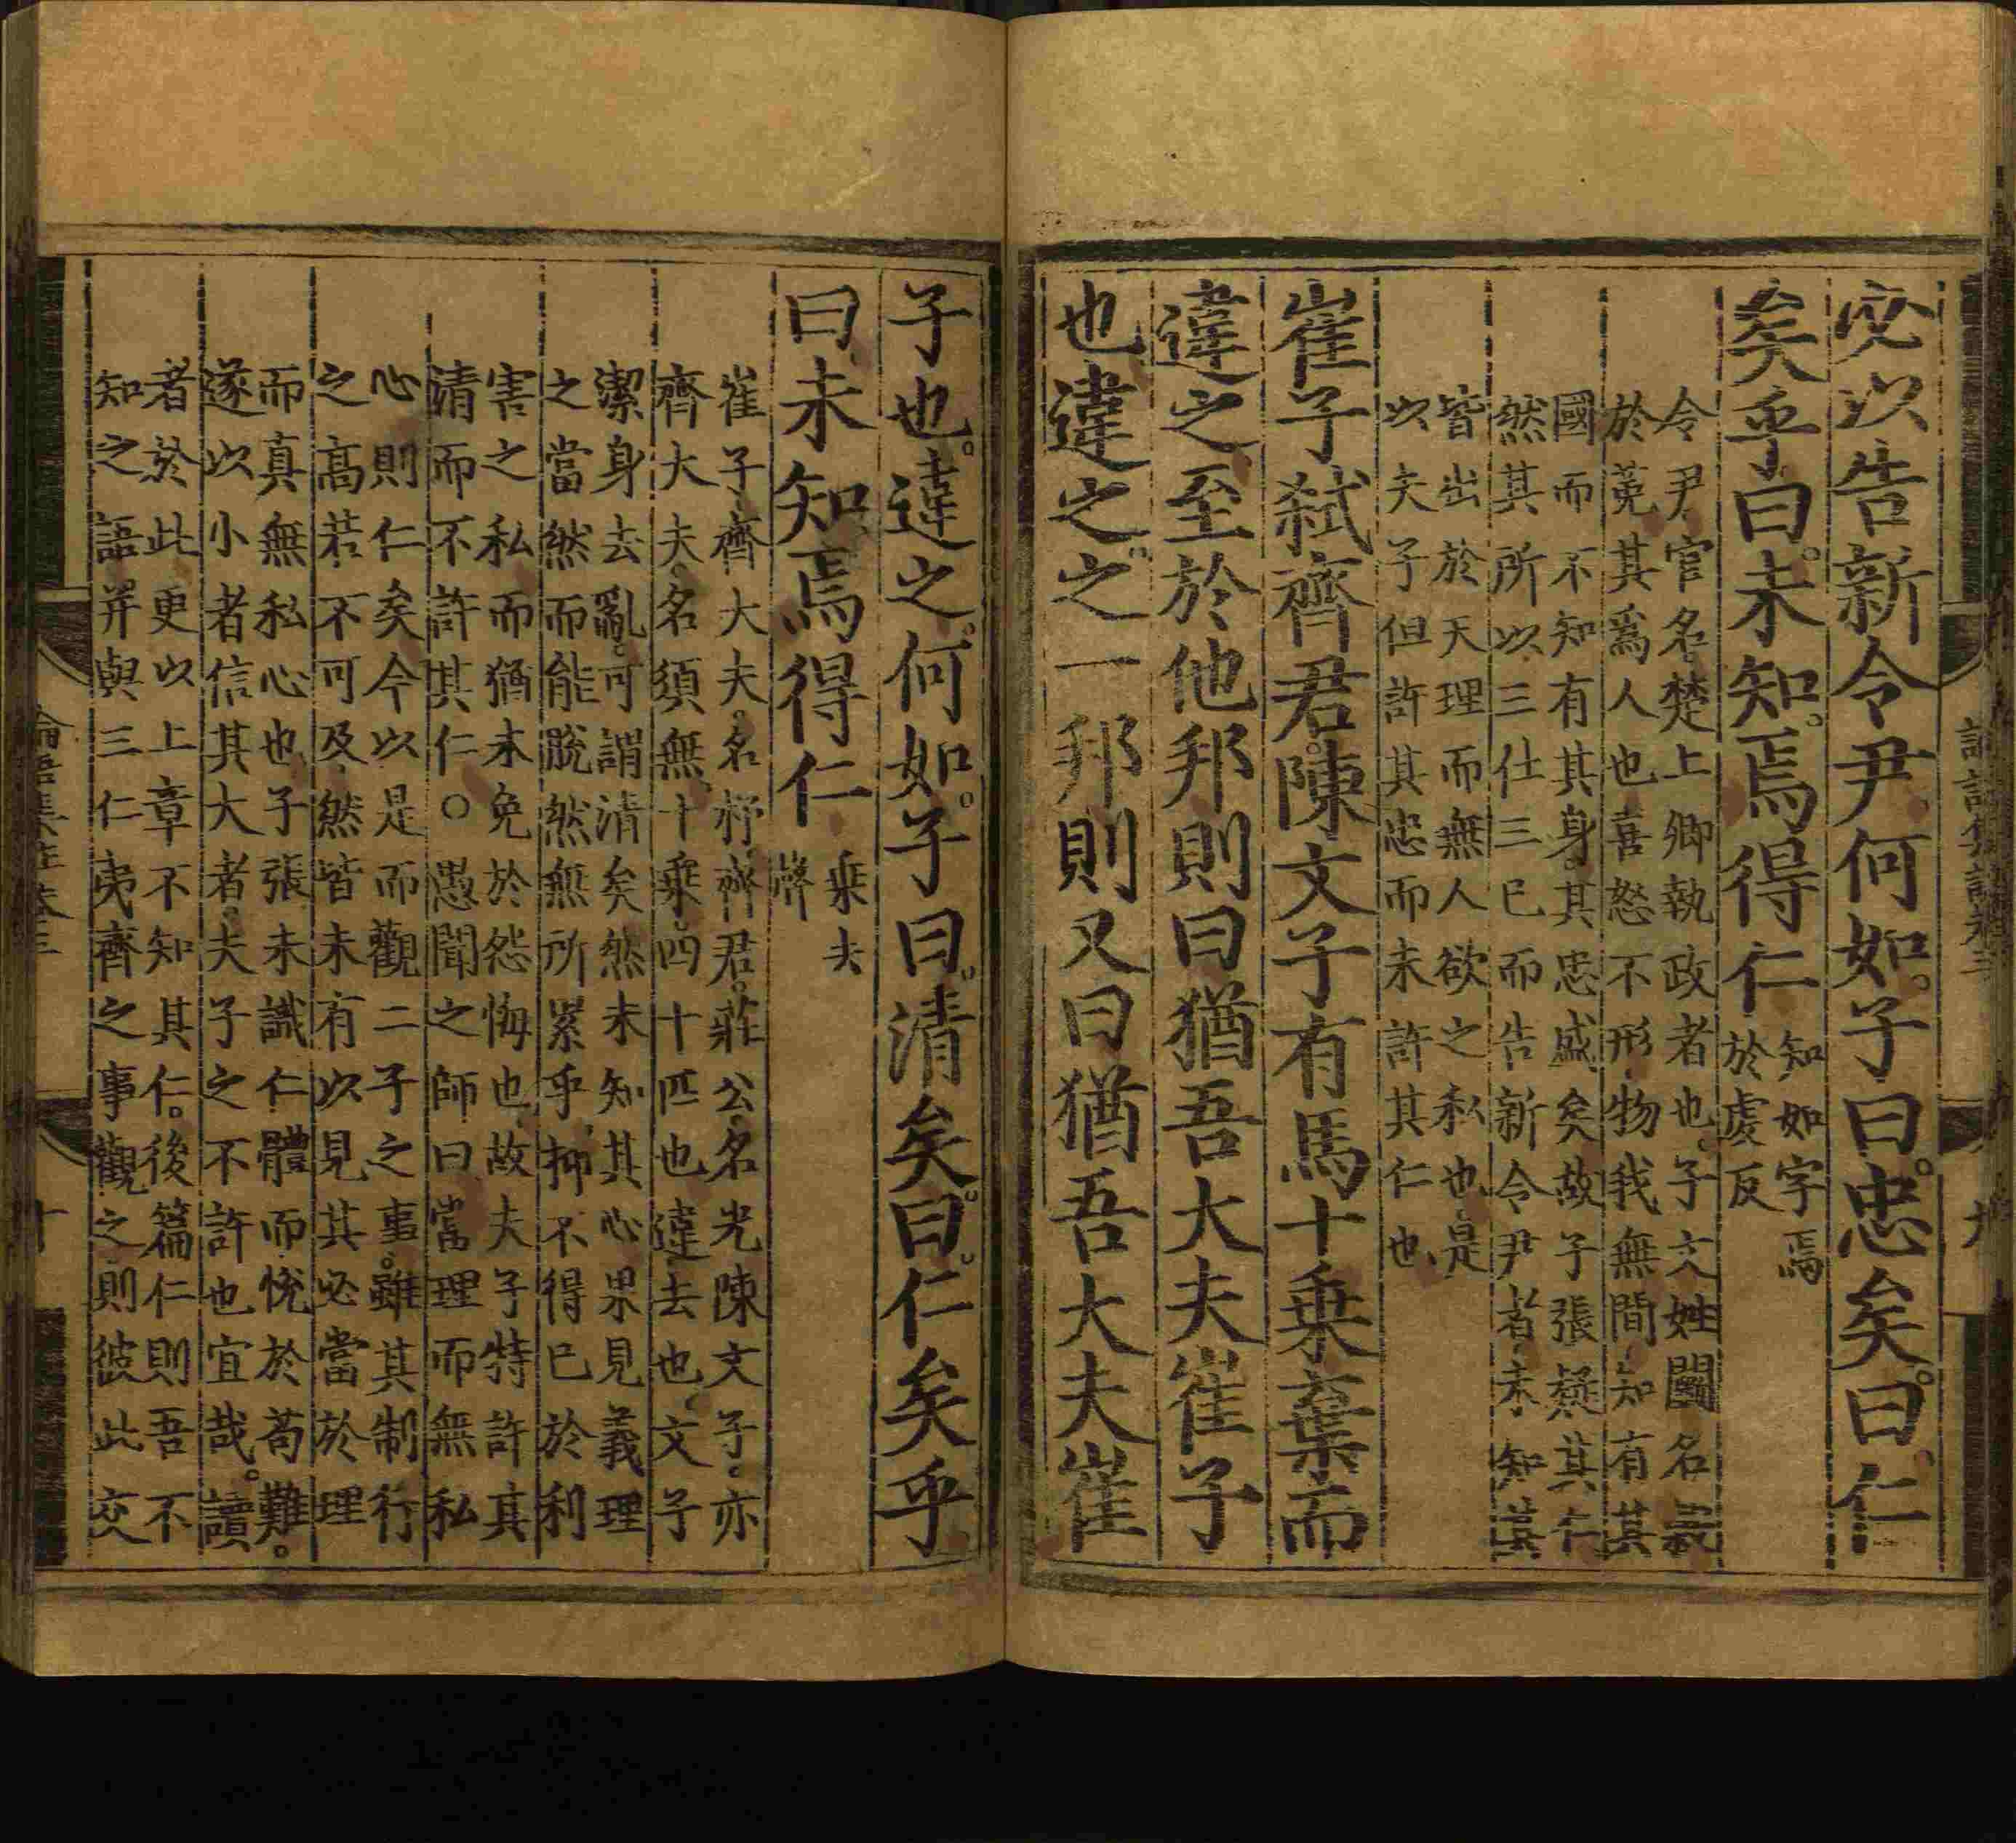 必以告新令尹何如子曰忠矣曰仁
矣乎曰未知焉得仁
知如字焉
於虔反
令尹官名楚上卿執政者也子文姓鬬名穀
於菟其爲人也喜怒不形物我無間知有其
國而不知有其身其忠盛矣故子張疑其仁
然其所以三仕三已而告新令尹者未知其
皆出於天理而無人欲之私也是
以夫子但許其忠而未許其仁也
崔子弑齊君陳文子有馬十乗棄而
違之至於他邦則曰猶吾大夫崔子
也違之之一邦則又曰猶吾大夫崔
子也違之何如子曰清矣曰仁矣乎
曰未知焉得仁
乗去
聲
崔子齊大夫名杼齊君莊公名光陳文子亦
齊大夫名須無十乗四十匹也違去也文子
潔身去亂可謂清矣然未知其心果見義理
之當然而能脱然無所累乎抑不得已於利
害之私而猶未免於怨悔也故夫子特許其
清而不許其仁○愚聞之師曰當理而無私
心則仁矣今以是而觀二子之事雖其制行
之高若不可及然皆未有以見其必當於理
而真無私心也子張未識仁體而悅於苟難
遂以小者信其大者夫子之不許也宜哉讀
者於此更以上章不知其仁後篇仁則吾不
知之語并與三仁夷齊之事觀之則彼此交
論語集註卷三
十